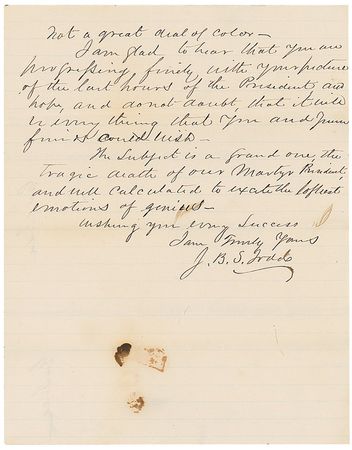 Not a great deal of color—
I am glad to hear that you are
progressing finely with your picture
of the last hours of the President and
hope, and do not doubt, that it will
be everything that you and your
friends could wish—
The Subject is a grand one, the
tragic death of our Martyr President
and well calculated to excite the loftiest
emotions of genius—
Wishing you every Success
I am Truly Yours
J. B. S. Todd